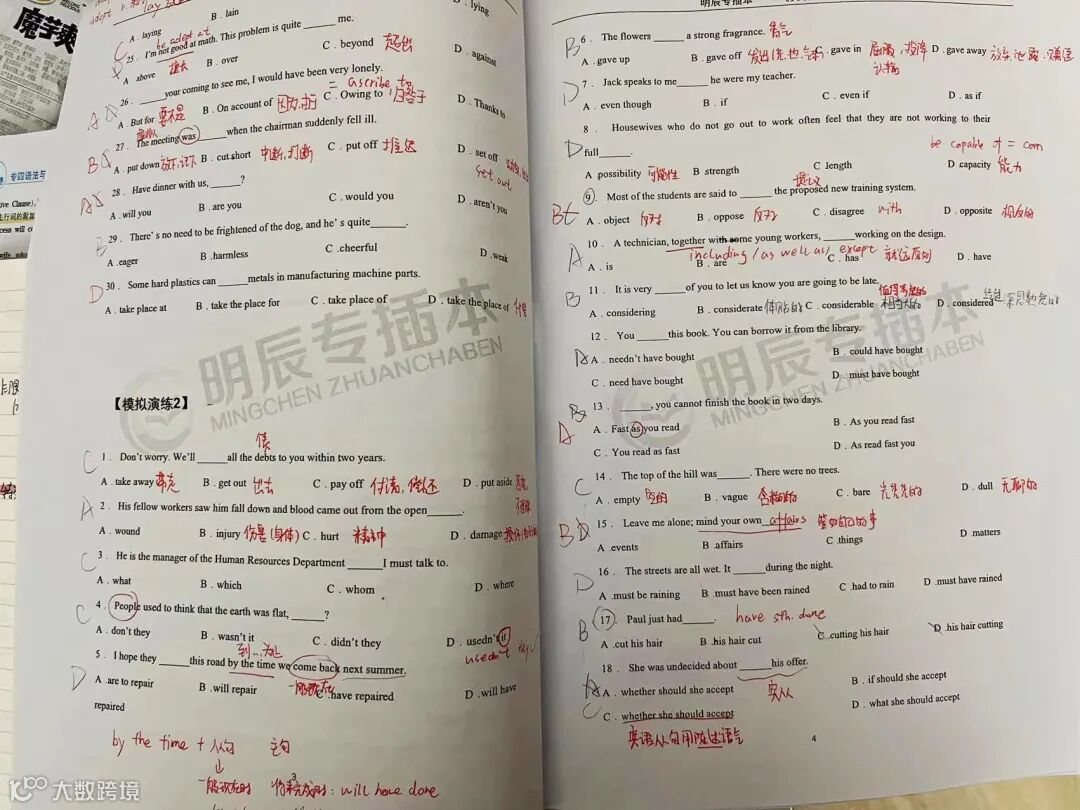 魔芋爽
专四语法与
adopt
lay
A . laying
B . lain
D . lying
be adept at
25 . I'm not good at math. This problem is quite ______ me.
A above 擅长
B . over
C . beyond 超出
D . against
26 . ______your coming to see me, I would have been very lonely.
= ascribe to
A . But for 要不是
B . On account of 因为,由于
C . Owing to 归因于
D . Thanks to
27 . The meeting was______when the chairman suddenly fell ill.
B
A . put down 放下,记下
B . cut short 中断,打断
C . put off 推迟
D . set off
set out
28 . Have dinner with us, ______?
A
A .will you
B . are you
C . would you
D . aren't you
29 . There's no need to be frightened of the dog, and he's quite______.
B
A .eager
B .harmless
C .cheerful
D .weak
30 . Some hard plastics can ______metals in manufacturing machine parts.
D
A . take place at
B . take the place for
C . take place of
D . take the place of 代替
明辰专插本
MINGCHEN ZHUANCHABEN
【模拟演练2】
债
1 . Don't worry. We'll ______all the debts to you within two years.
C
A . take away 拿走
B . get out 出去
C . pay off 付清,偿还
D . put aside
2 . His fellow workers saw him fall down and blood came out from the open______.
A
A . wound
B . injury 伤害(身体)
C . hurt 精神
D . damage
3 . He is the manager of the Human Resources Department ______I must talk to.
C
A . what
B . which
C . whom
D . where
4 . People used to think that the earth was flat, ______?
C
A . don't they
B . wasn't it
C . didn't they
D . usedn't it
usedn't they
到…为止
5 . I hope they ______this road by the time we come back next summer.
D
A .are to repair
B .will repair
一般现在
C .have repaired
D .will have
repaired
by the time + 从句 主句
一般现在时 将来完成时: will have done
3
明辰专插本
6 . The flowers ______ a strong fragrance. 香气
B
A . gave up
B . gave off
C . gave in 屈服,投降
D . gave away
认输
7 . Jack speaks to me______ he were my teacher.
D
A . even though
B . if
C . even if
D . as if
8 . Housewives who do not go out to work often feel that they are not working to their
full______.
D
be capable of = can
A . possibility 可能性
B . strength
C . length
D . capacity 能力
提议
9 . Most of the students are said to ______ the proposed new training system.
B
A . object 反对
B . oppose 反对
C . disagree with
D . opposite 相反的
10 . A technician, together with some young workers, ______working on the design.
A
including / as well as / except 就远原则
A . is
B . are
C . has
D . have
11 . It is very ______of you to let us know you are going to be late.
B
A . considering
B . considerate 体贴的
C . considerable 相当大的
D . considered
12 . You ______this book. You can borrow it from the library.
A
A . needn't have bought
B . could have bought
C . need have bought
D . must have bought
13 . ______, you cannot finish the book in two days.
A
A . Fast as you read
B . As you read fast
C . You read as fast
D . As read fast you
14 . The top of the hill was______. There were no trees.
C
A . empty 空的
B . vague 含糊的
C . bare 光秃秃的
D . dull 无聊的
15 . Leave me alone; mind your own affairs 管好自己的事
B
A .events
B .affairs
C .things
D .matters
16 . The streets are all wet. It ______during the night.
D
A .must be raining
B .must have been rained
C .had to rain
D .must have rained
17 . Paul just had______. have sth. done
B
A .cut his hair
B .his hair cut
C .cutting his hair
D .his hair cutting
18 . She was undecided about ______his offer.
A . whether should she accept
宾从
B . if should she accept
C
C . whether she should accept
D . what she should accept
宾语从句用陈述语气
4
大数跨境